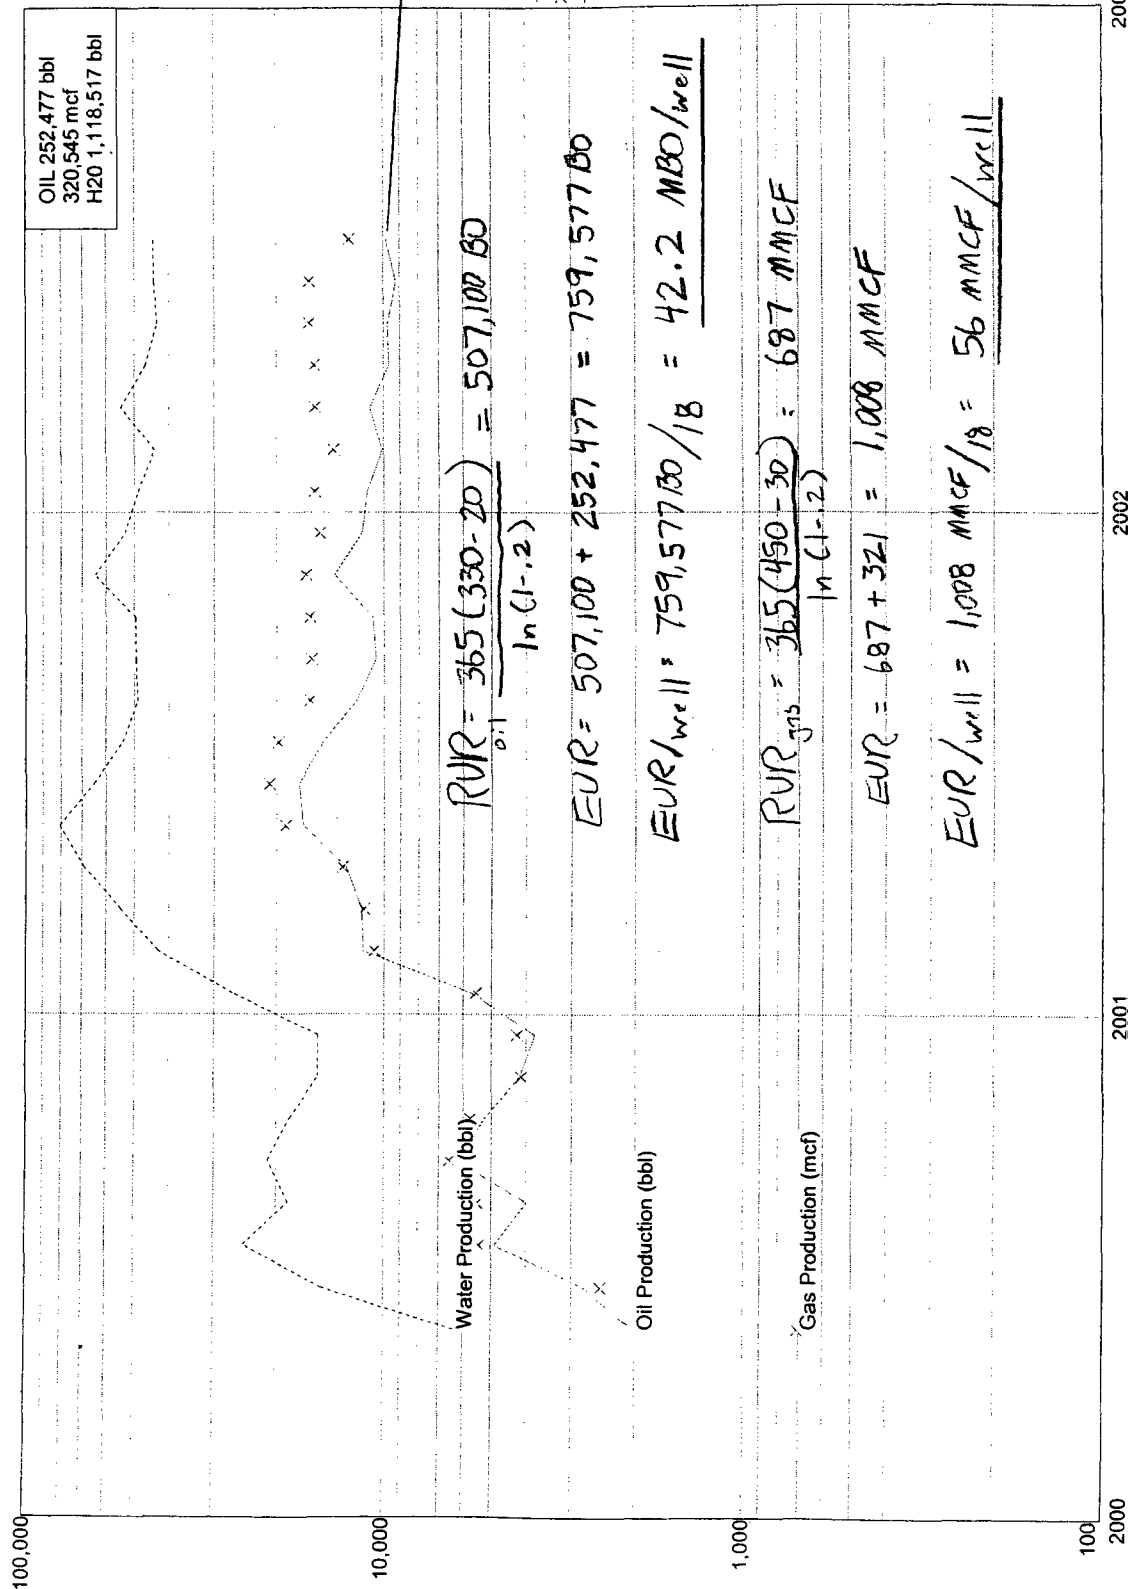 OIL 252,477 bbl
320,545 mcf
H20 1,118,517 bbl
100,000
10,000
1,000
100
Water Production (bbl)
Oil Production (bbl)
Gas Production (mcf)
RUR oil = 365 (330-20) / ln (1-.2) = 507,100 BO
EUR = 507,100 + 252,477 = 759,577 BO
EUR/well = 759,577 BO/18 = 42.2 MBO/well
RUR gas = 365 (450-30) / ln (1-.2) = 687 MMCF
EUR = 687 + 321 = 1,008 MMCF
EUR/well = 1,008 MMCF/18 = 56 MMCF/well
2000
2001
2002